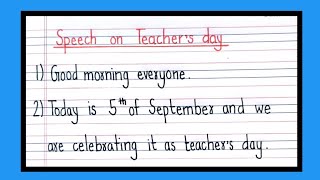 Speech on Teacher's day
1) Good morning everyone.
2) Today is 5th of September and we
are celebrating it as teacher's day.